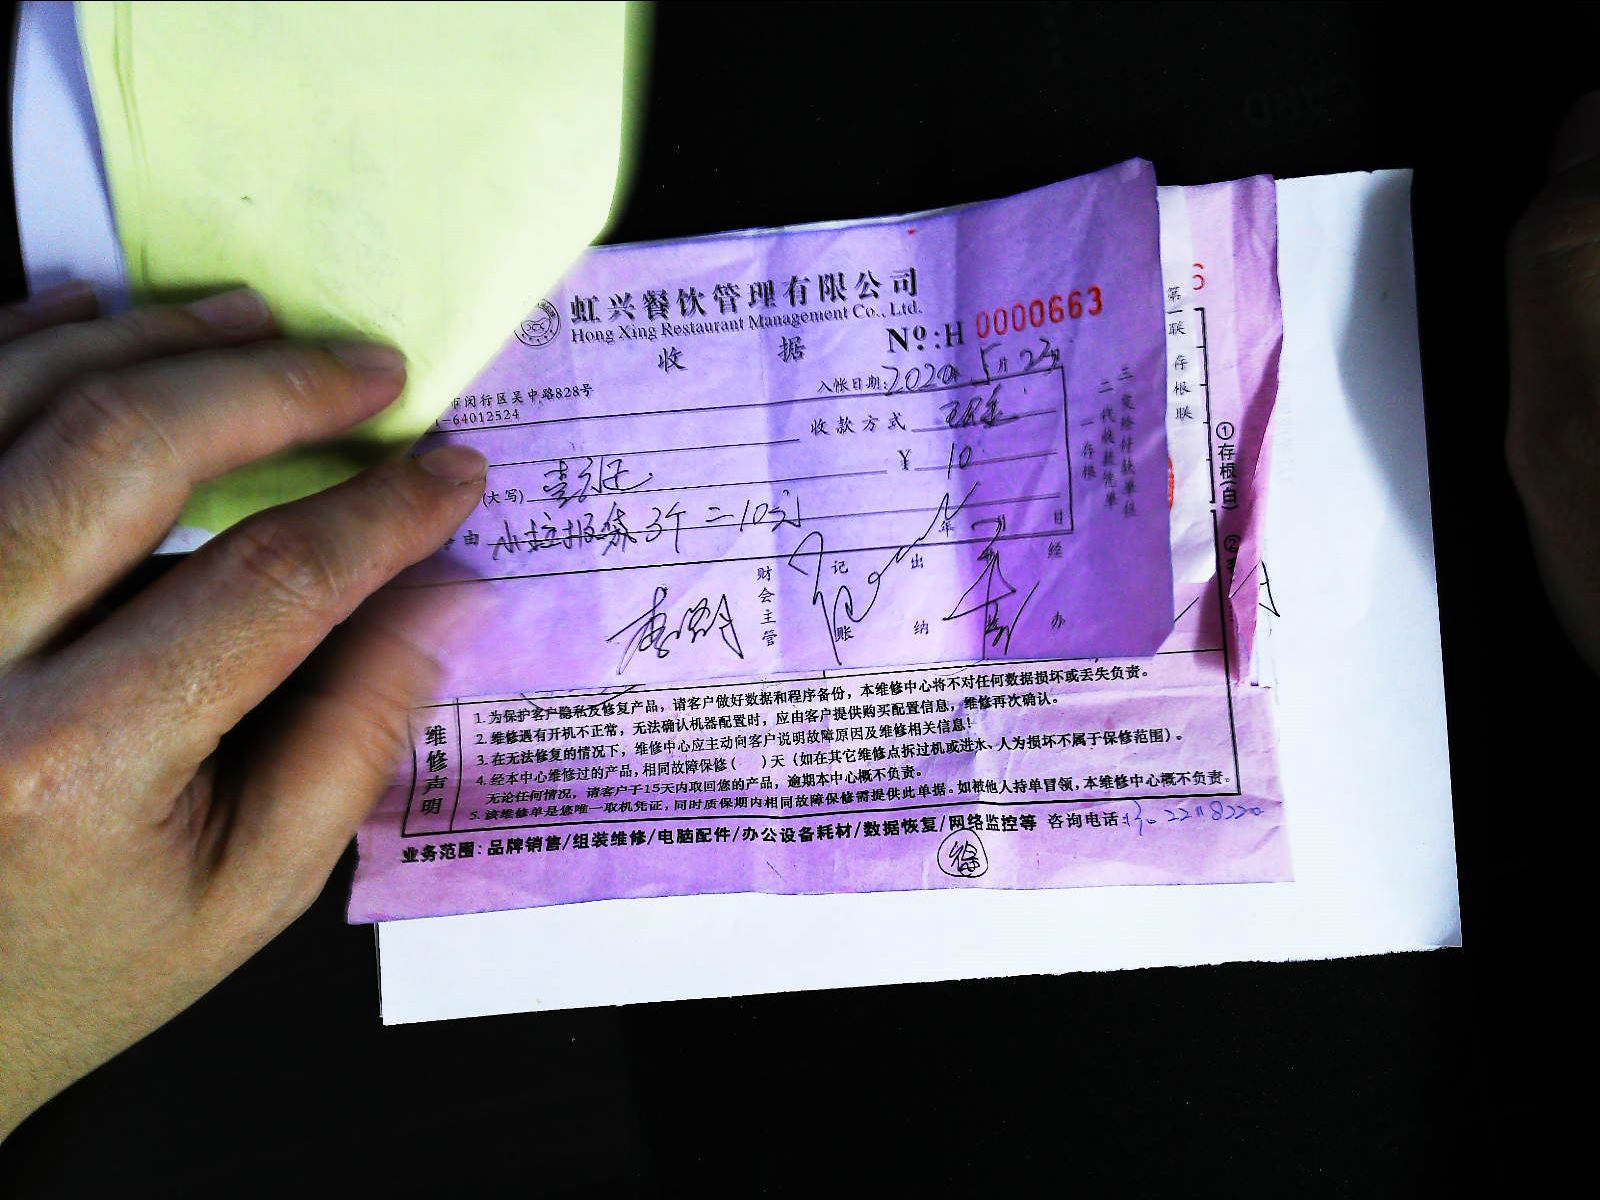 虹兴餐饮管理有限公司
Hong Xing Restaurant Management Co., Ltd.
收 据
Nº:H 0000663
市闵行区吴中路828号
-64012524
入帐日期:2020年5月22日
收款方式
(大写)
¥ 10
由 小拉报袋3个=10元
年 月 日
财会主管
记账
出纳
经办
一存根
二代收款凭单
三交给付款单位
第一联 存根联
6
①存根(白)
②
维修声明
1. 为保护客户隐私及修复产品，请客户做好数据和程序备份，本维修中心将不对任何数据损坏或丢失负责。
2. 维修遇有开机不正常，无法确认机器配置时，应由客户提供购买配置信息，维修再次确认。
3. 在无法修复的情况下，维修中心应主动向客户说明故障原因及维修相关信息！
4. 经本中心维修过的产品，相同故障保修( )天（如在其它维修点拆过机或进水、人为损坏不属于保修范围）。
无论任何情况，请客户于15天内取回您的产品，逾期本中心概不负责。
5. 该维修单是您唯一取机凭证，同时质保期内相同故障保修需提供此单据。如被他人持单冒领，本维修中心概不负责。
业务范围：品牌销售/组装维修/电脑配件/办公设备耗材/数据恢复/网络监控等 咨询电话: